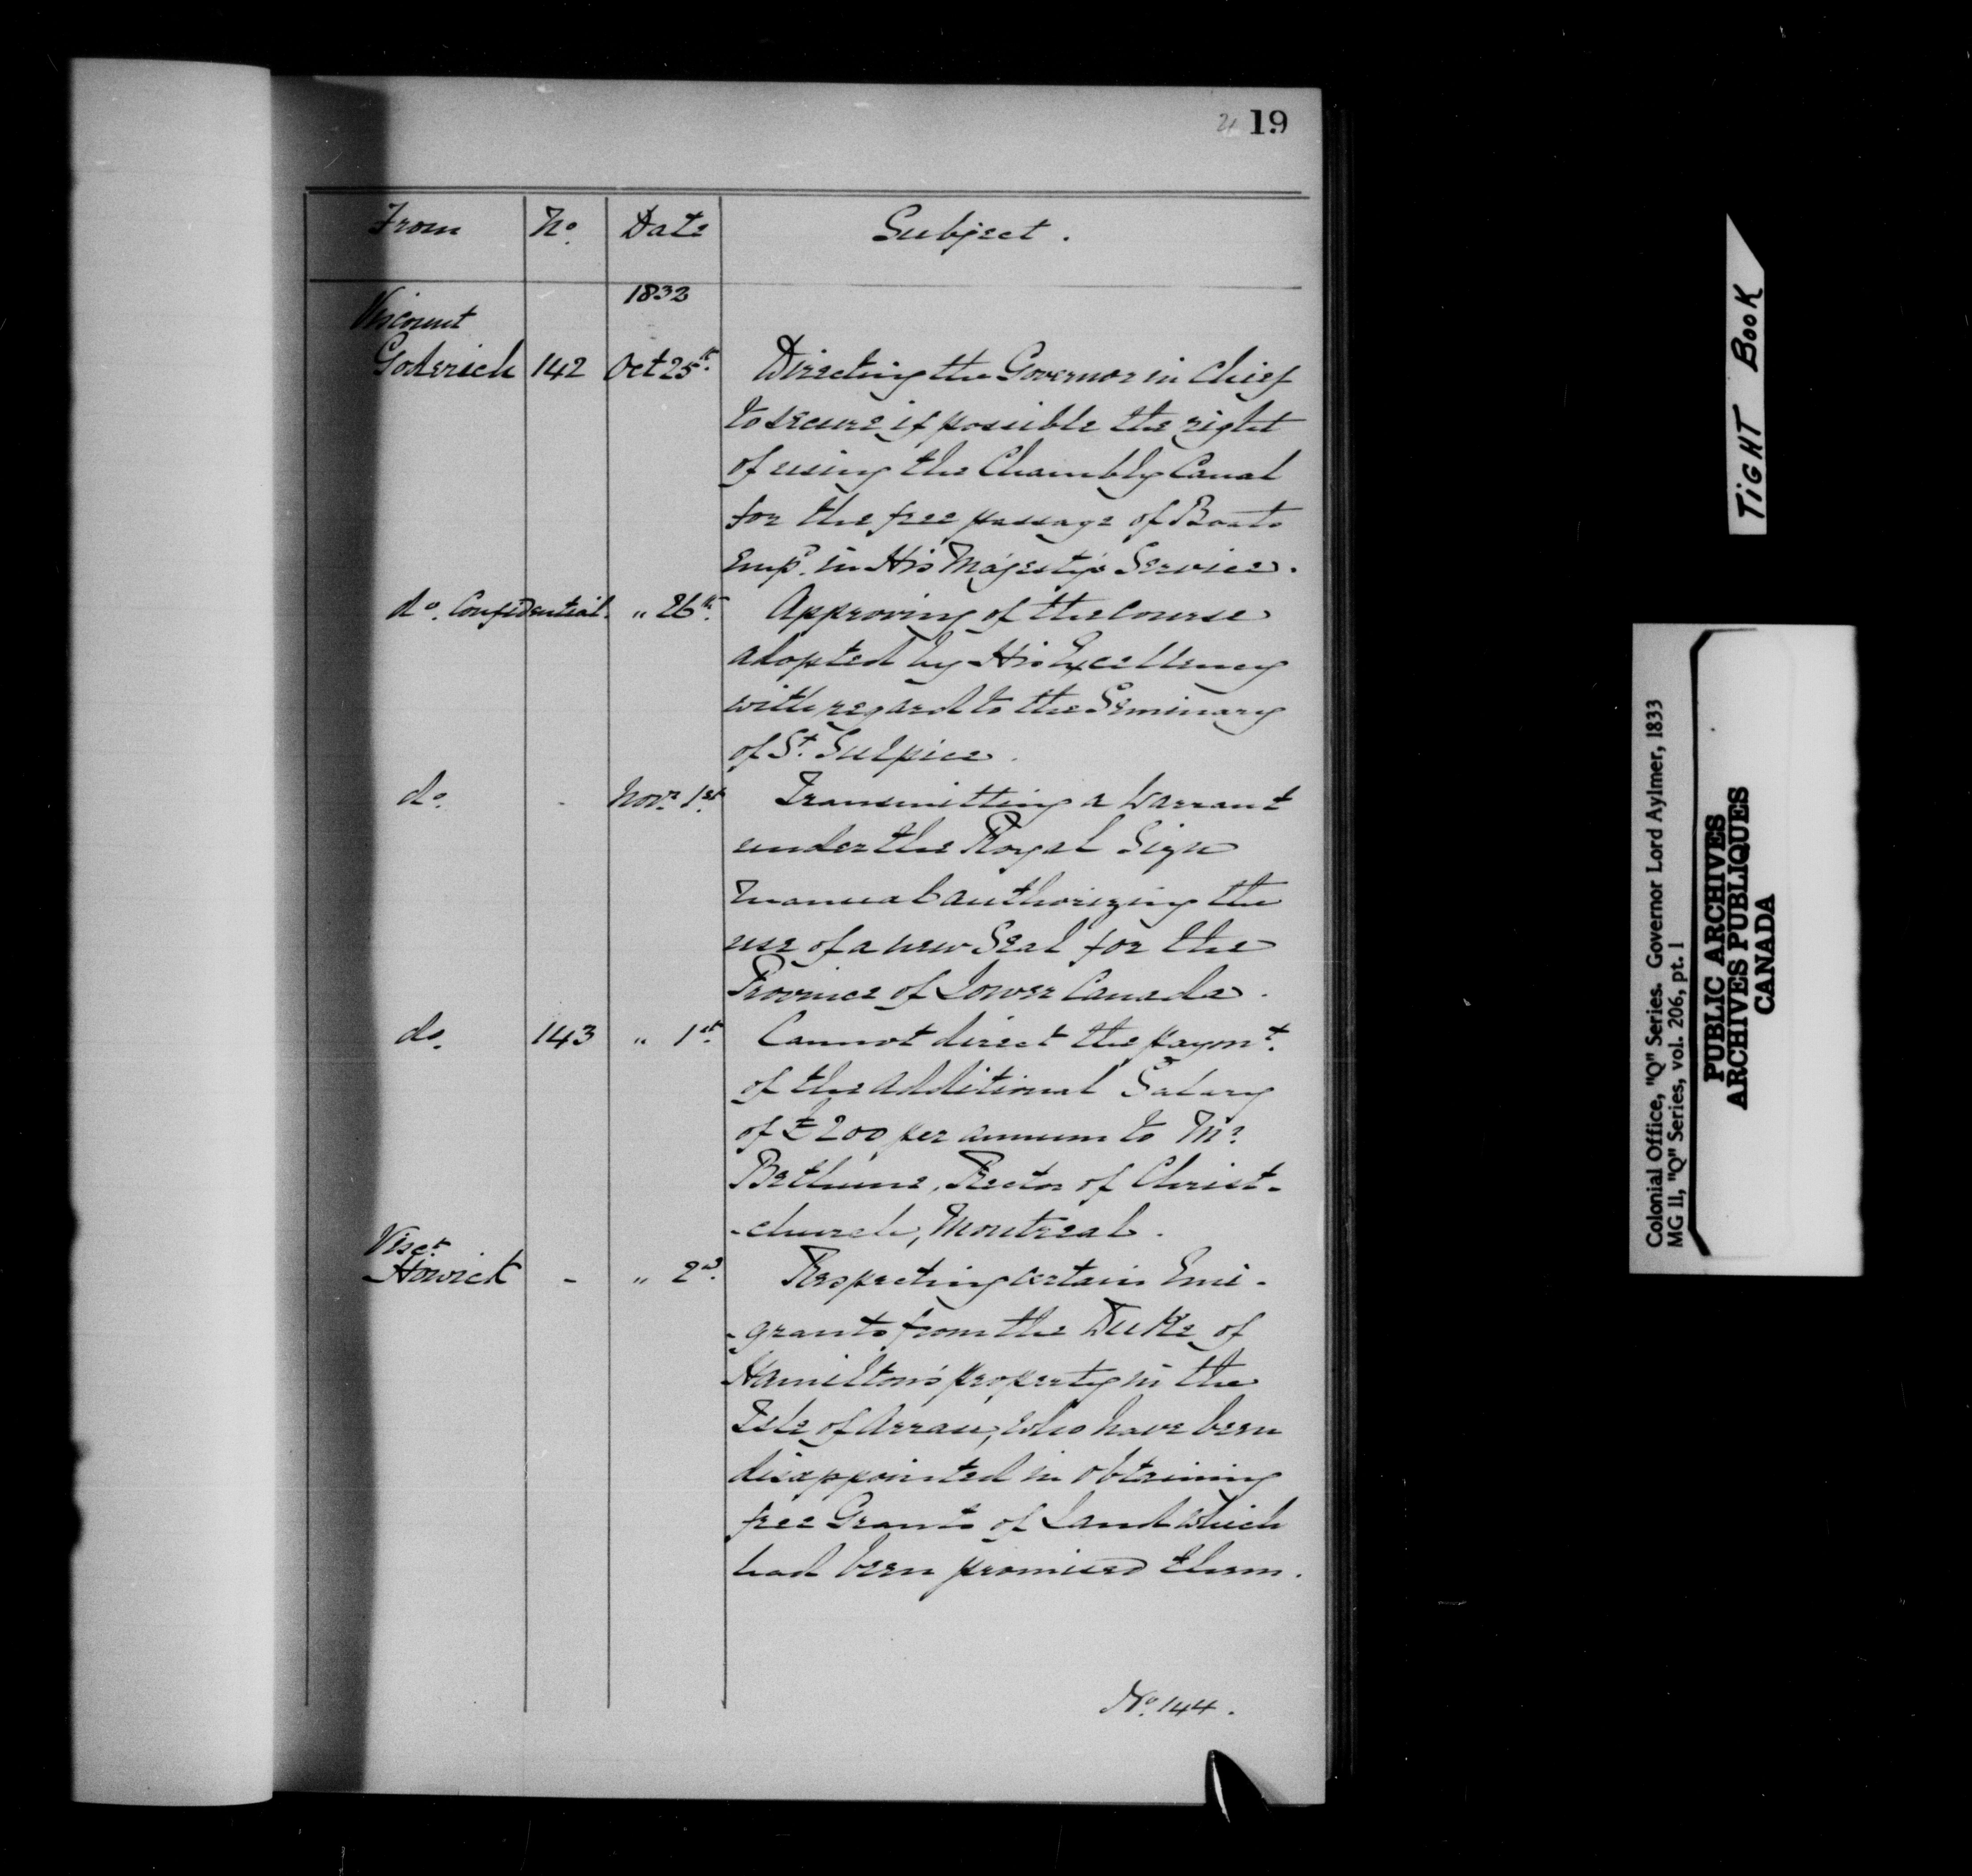 21 19
From No. Date Subject.
1832
Viscount
Goderich 142 Oct 25th. Directing the Governor in Chief
to secure if possible the right
of using the Chambly Canal
for the free passage of Boats
Empd. in His Majesty's Service.
do. Confidential. " 26th. Approving of the course
adopted by His Excellency
with regard to the Seminary
of St. Sulpice.
do. - Novr. 1st. Transmitting a Warrant
under the Royal Sign
Manual authorizing the
use of a new Seal for the
Province of Lower Canada.
do. 143 " 1st. Cannot direct the paymt.
of the additional Salary
of £200 per annum to Mr.
Bethune, Rector of Christ-
-church, Montreal.
Visct.
Howick - " 2nd. Respecting certain Emi-
-grants from the Duke of
Hamilton's property in the
Isle of Arran, who have been
disappointed in obtaining
free Grants of Land which
had been promised them.
No. 144.
TIGHT BOOK
Colonial Office, "Q" Series. Governor Lord Aylmer, 1833
MG 11, "Q" Series, vol. 206, pt. 1
PUBLIC ARCHIVES
ARCHIVES PUBLIQUES
CANADA